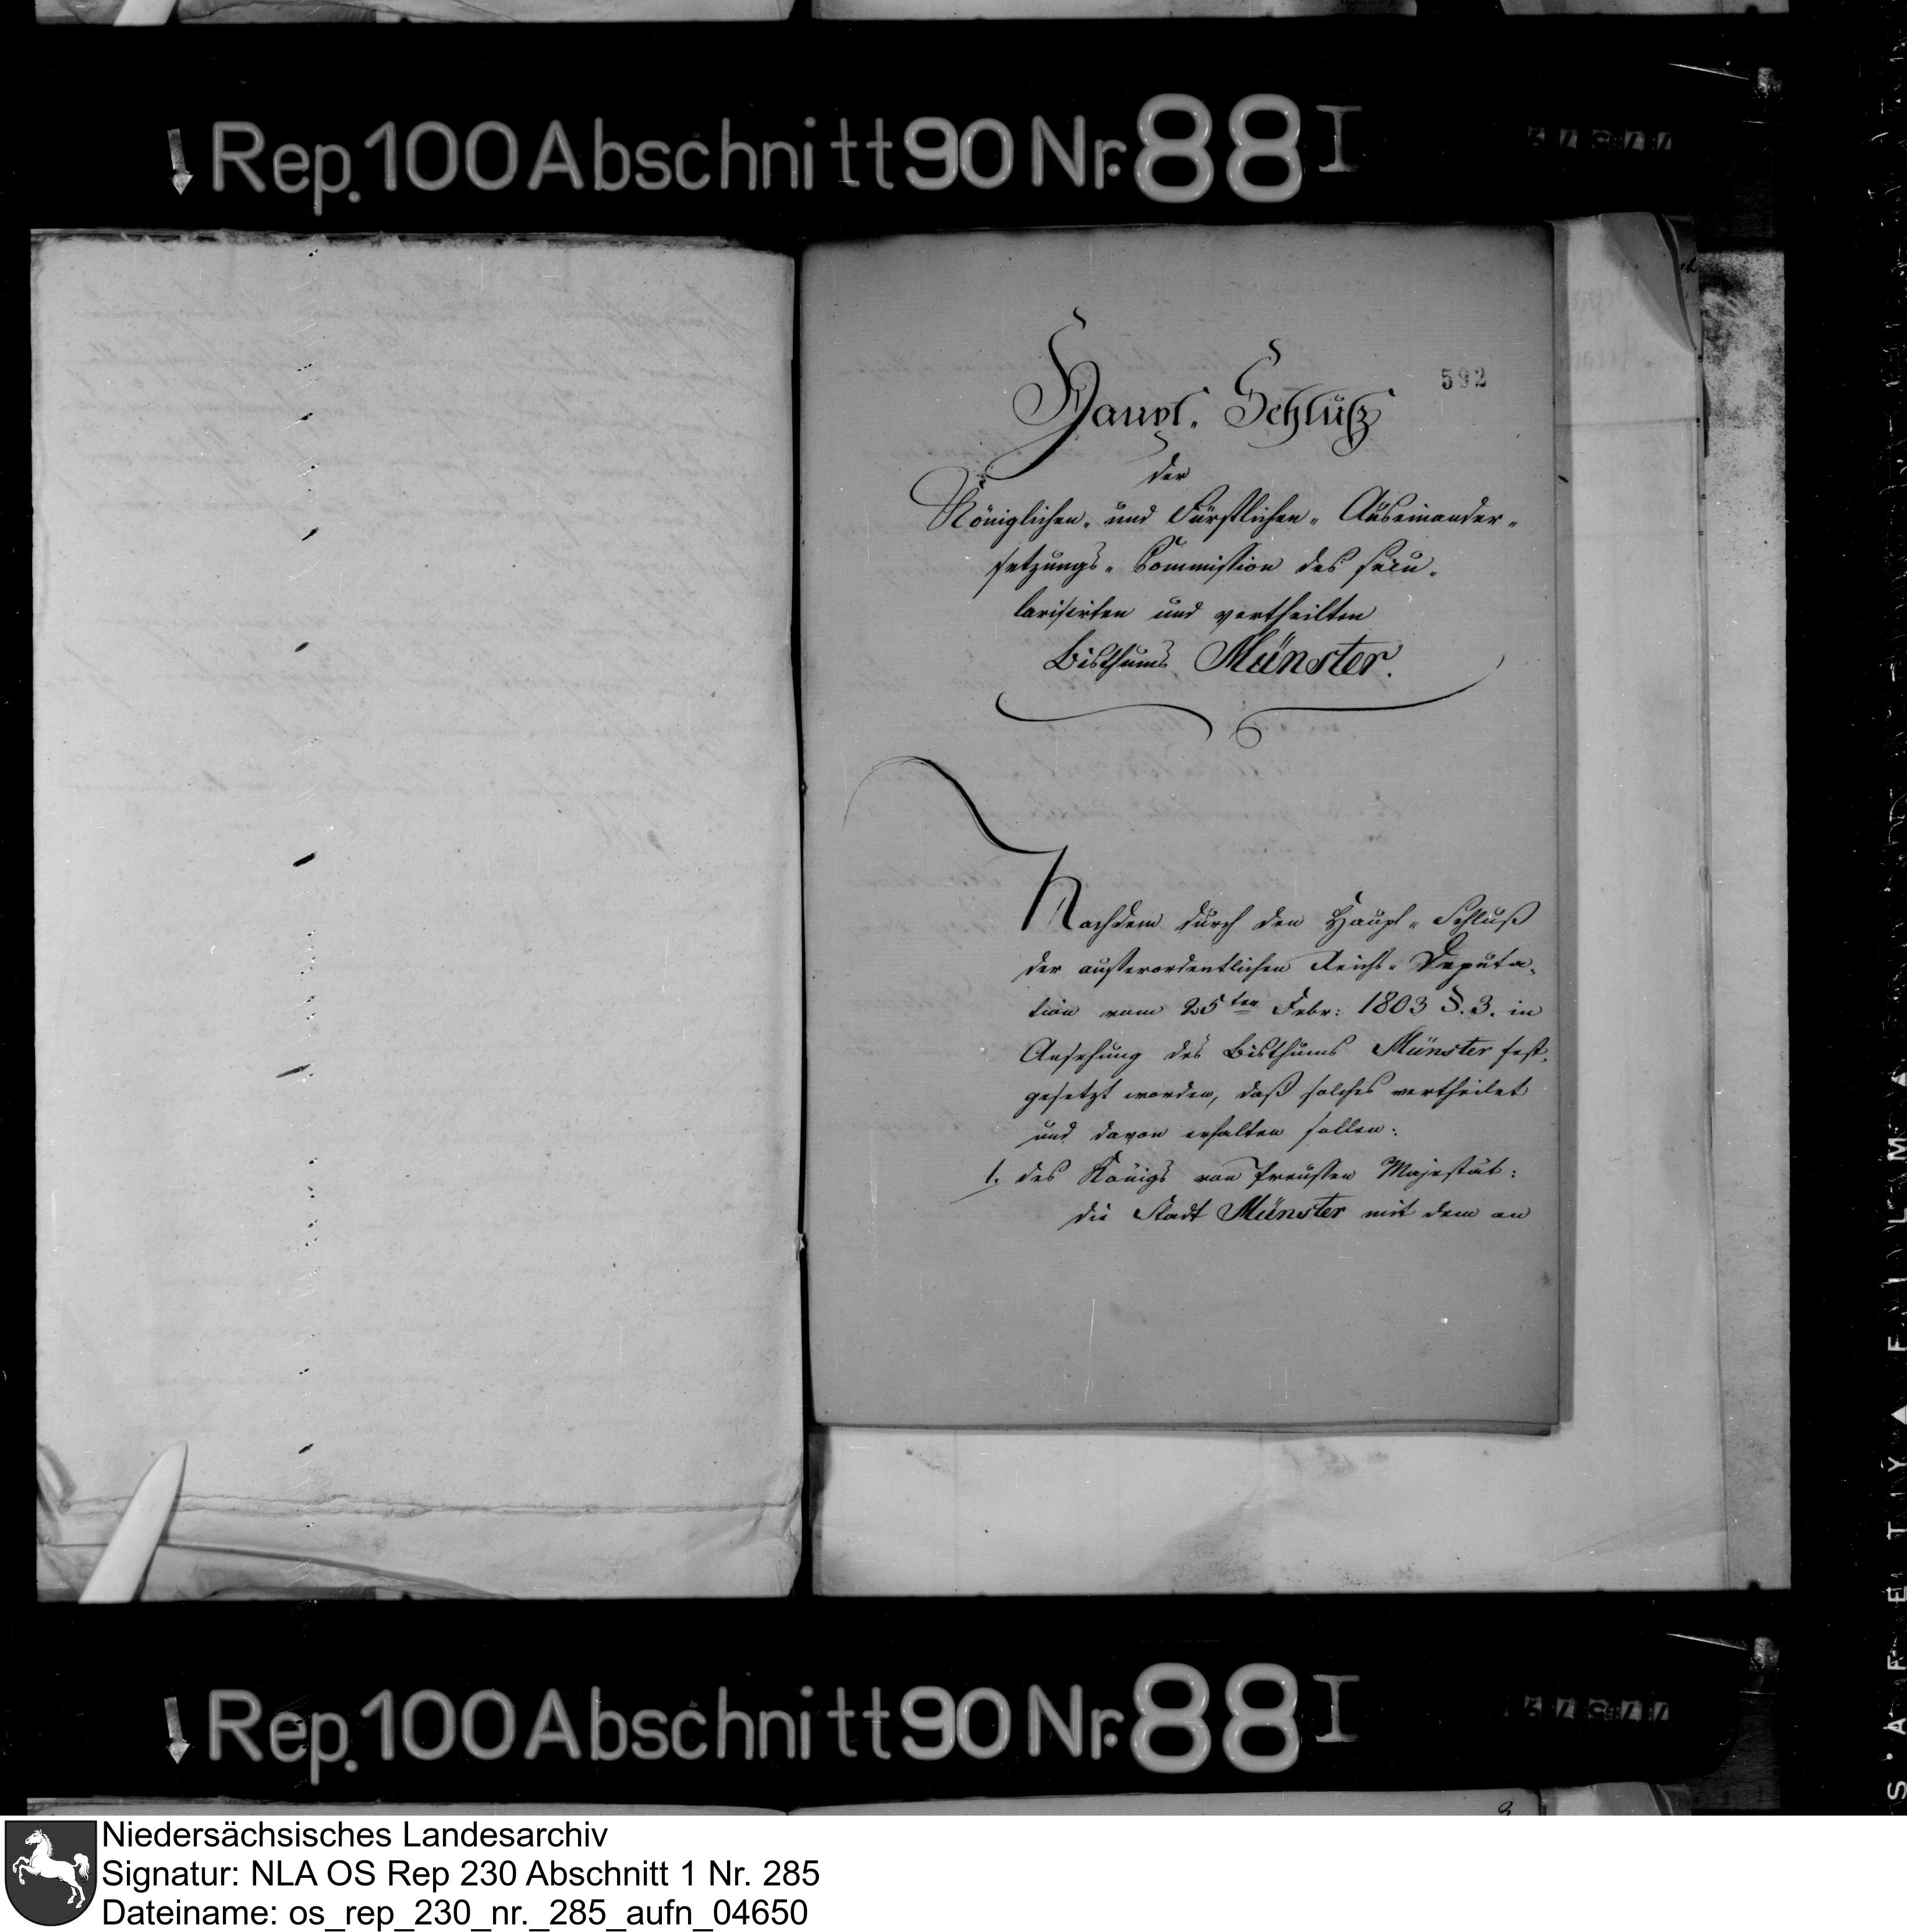 Rep. 100 Abschnitt 90 Nr. 88 I
592
Haupt-Schluß
der
Königlichen- und Fürstlichen- Auseinander-
setzungs- Commission des secu-
larisirten und vertheilten
Bisthums Münster.
Nachdem durch den Haupt-Schluß
der ausserordentlichen Reichs-Deputa-
tion vom 25ten Febr: 1803 §. 3. in
Ansehung des Bisthums Münster fest-
gesetzt worden, daß solches vertheilet
und davon erhalten sollen:
1. des Königs von Preussen Majestät:
die Stadt Münster mit dem an
Rep. 100 Abschnitt 90 Nr. 88 I
Niedersächsisches Landesarchiv
Signatur: NLA OS Rep 230 Abschnitt 1 Nr. 285
Dateiname: os_rep_230_nr._285_aufn_04650